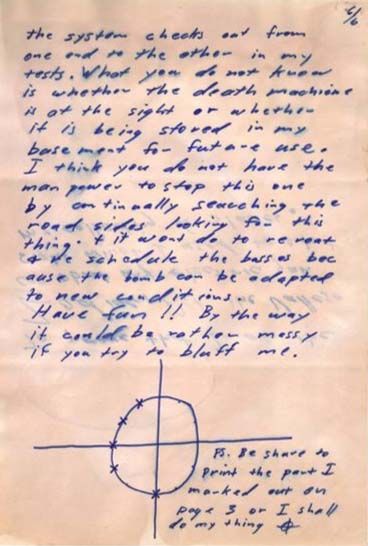 6/6
the system checks out from
one end to the other in my
tests. What you do not know
is whether the death machine
is at the sight or whether
it is being stored in my
basement for future use.
I think you do not have the
man power to stop this one
by continually seaeching the
road sides looking for this
thing. + it wont do to re roat
+ re schedule the busses bec
ause the bomb can be adapted
to new conditions.
Have fun !! By the way
it could be rather messy
if you try to bluff me.
PS. Be shure to
print the part I
marked out on
page 3 or I shall
do my thing